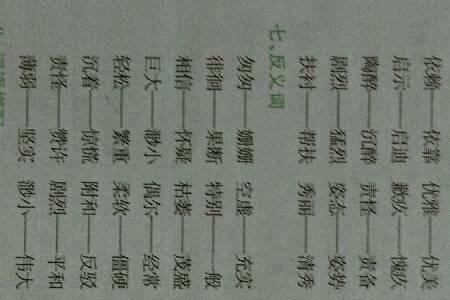 依赖——依靠 优雅——优美
启示——启迪
陶醉——沉醉 责怪——责备
剧烈——猛烈 姿态——姿势
扶衬——帮扶 秀丽——清秀
七、反义词
匆匆——姗姗 空虚——充实
徘徊——果断 特别——一般
相信——怀疑 枯萎——茂盛
巨大——渺小 偶尔——经常
轻松——繁重 柔软——僵硬
沉着——惊慌 附和——反驳
责怪——赞许 剧烈——平和
薄弱——坚实 渺小——伟大